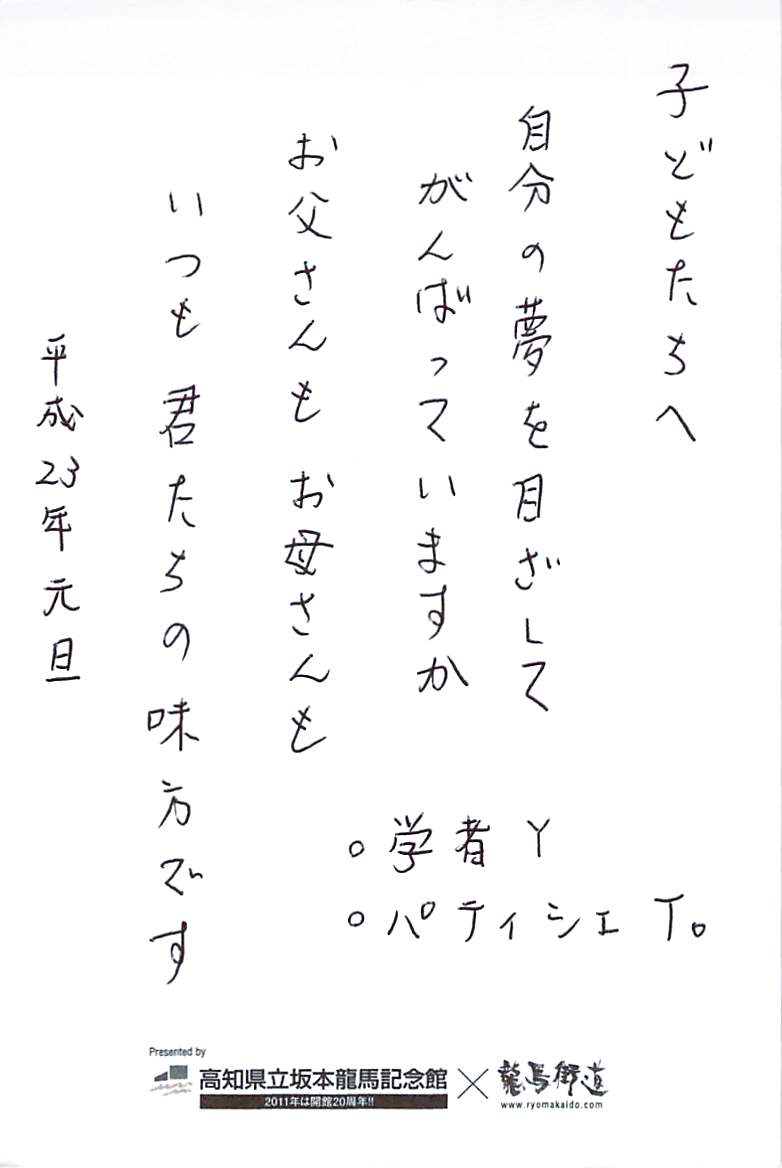 子どもたちへ
自分の夢を目ざして
がんばっていますか
お父さんも お母さんも
いつも 君たちの味方です
平成23年元旦
○学者 Y
○パティシエ T。
Presented by
高知県立坂本龍馬記念館
2011年は開館20周年!!
×
龍馬街道
www.ryomakaido.com